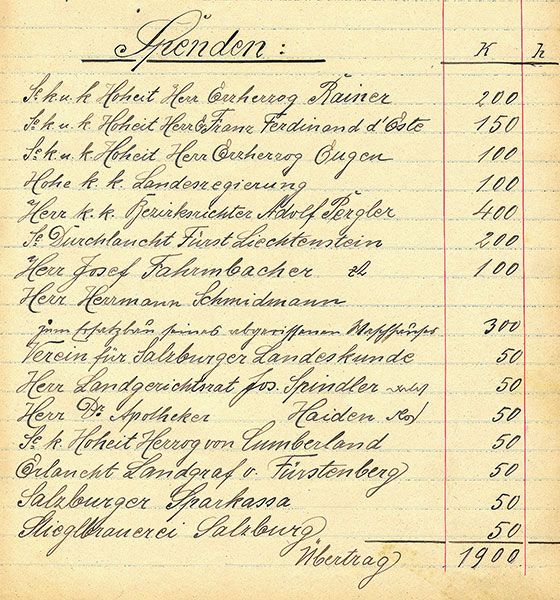 Spenden: K h
Se k u. k Hoheit Herr Erzherzog Rainer 200
Se k u. k Hoheit Herr E. Franz Ferdinand d'Este 150
Se k u. k Hoheit Herr Erzherzog Eugen 100
Hohe k. k. Landesregierung 100
Herr k. k. Bezirksrichter Adolf Pergler 400
Se Durchlaucht Fürst Liechtenstein 200
Herr Josef Fahrnbacher 100
Herr Herrmann Schmidmann
zum Ersatzbau seines abgerissenen Waschhauses 300
Verein für Salzburger Landeskunde 50
Herr Landgerichtsrat Jos. Spindler 50
Herr Dr. Apotheker Haiden 50
Se k. Hoheit Herzog von Cumberland 50
Erlaucht Landgraf v. Fürstenberg 50
Salzburger Sparkassa 50
Stieglbrauerei Salzburg 50
Übertrag 1900